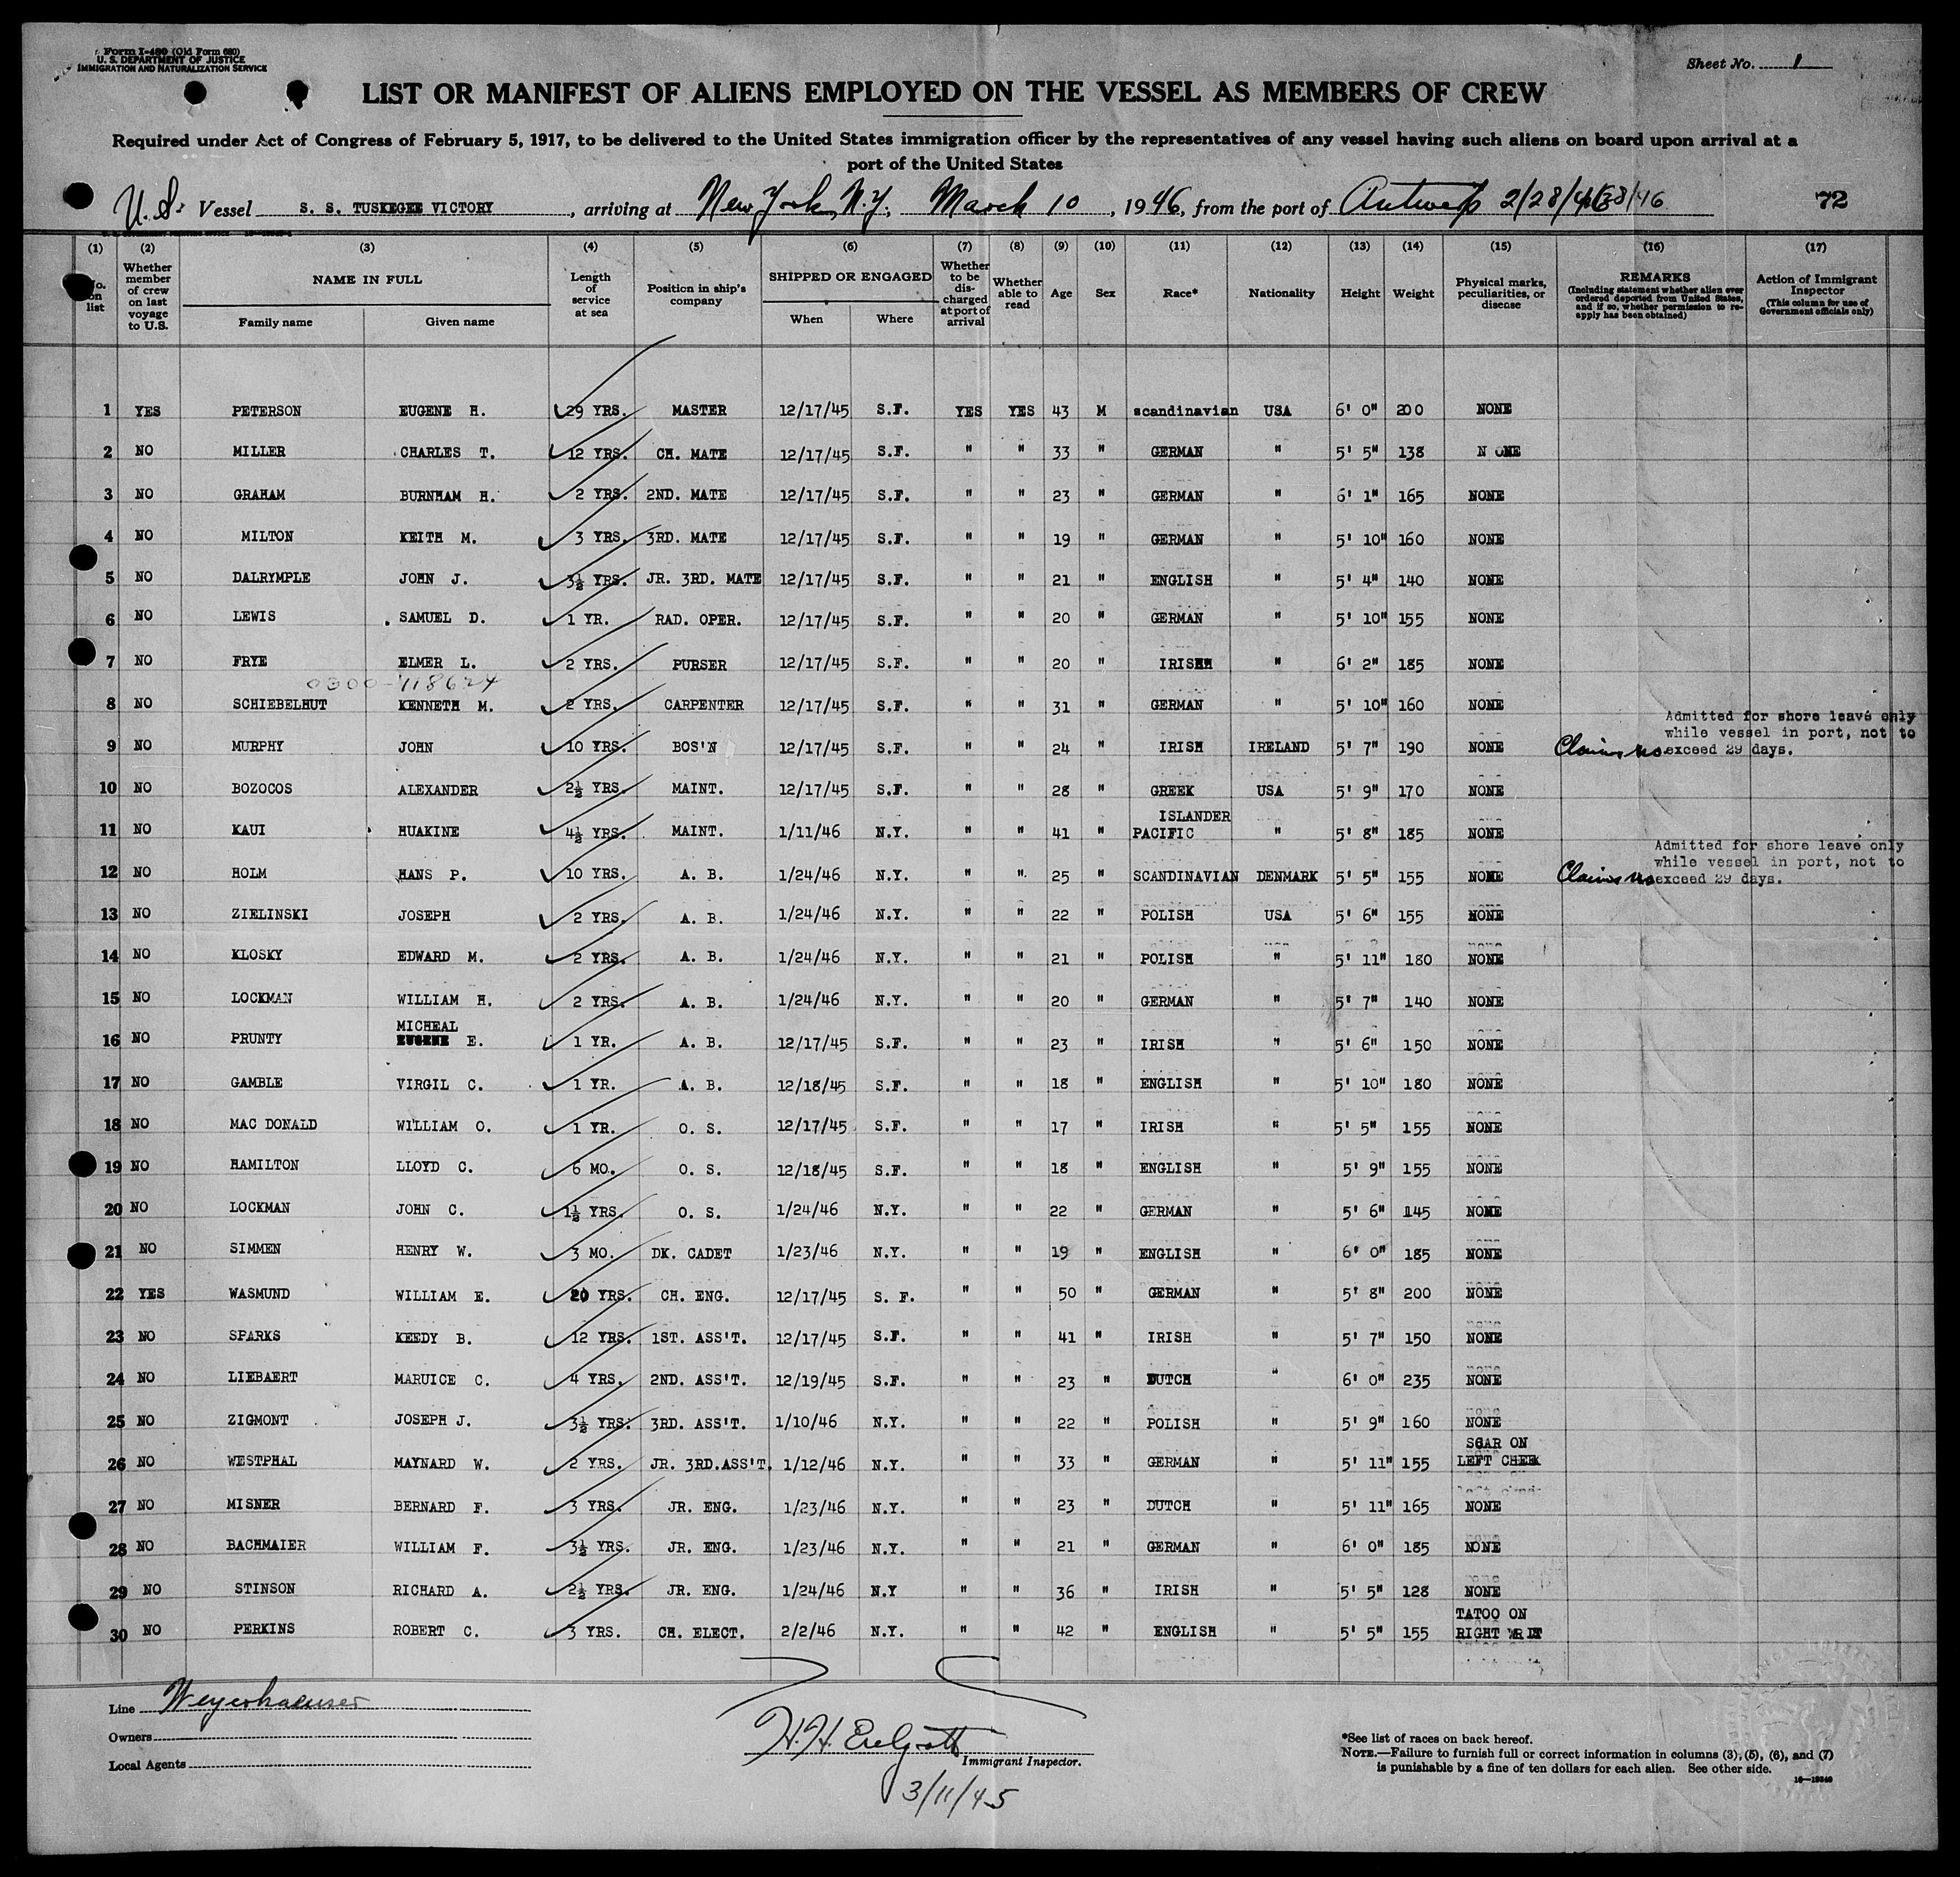 Form I-480 (Old Form 680)
U. S. DEPARTMENT OF JUSTICE
IMMIGRATION AND NATURALIZATION SERVICE
Sheet No. 1
LIST OR MANIFEST OF ALIENS EMPLOYED ON THE VESSEL AS MEMBERS OF CREW
Required under Act of Congress of February 5, 1917, to be delivered to the United States immigration officer by the representatives of any vessel having such aliens on board upon arrival at a
port of the United States
U.S. Vessel S. S. TUSKEGEE VICTORY, arriving at New York, N.Y., March 10, 1946, from the port of Antwerp 2/28/46 72
(1) (2) (3) (4) (5) (6) (7) (8) (9) (10) (11) (12) (13) (14) (15) (16) (17)
No. on list Whether member of crew on last voyage to U.S. NAME IN FULL Family name Given name Length of service at sea Position in ship's company SHIPPED OR ENGAGED When Where Whether to be discharged at port of arrival Whether able to read Age Sex Race* Nationality Height Weight Physical marks, peculiarities, or disease REMARKS (Including statement whether alien ever ordered deported from United States, and if so, whether permission to reapply has been obtained) Action of Immigrant Inspector (This column for use of Government officials only)
1 YES PETERSON EUGENE H. 29 YRS. MASTER 12/17/45 S.F. YES YES 43 M scandinavian USA 6' 0" 200 NONE
2 NO MILLER CHARLES T. 12 YRS. CH. MATE 12/17/45 S.F. " " 33 " GERMAN " 5' 5" 138 N ONE
3 NO GRAHAM BURNHAM H. 2 YRS. 2ND. MATE 12/17/45 S.F. " " 23 " GERMAN " 6' 1" 165 NONE
4 NO MILTON KEITH M. 3 YRS. 3RD. MATE 12/17/45 S.F. " " 19 " GERMAN " 5' 10" 160 NONE
5 NO DALRYMPLE JOHN J. 3½ YRS. JR. 3RD. MATE 12/17/45 S.F. " " 21 " ENGLISH " 5' 4" 140 NONE
6 NO LEWIS SAMUEL D. 1 YR. RAD. OPER. 12/17/45 S.F. " " 20 " GERMAN " 5' 10" 155 NONE
7 NO FRYE ELMER L. 2 YRS. PURSER 12/17/45 S.F. " " 20 " IRISH " 6' 2" 185 NONE
0300-418624
8 NO SCHIEBELHUT KENNETH M. 2 YRS. CARPENTER 12/17/45 S.F. " " 31 " GERMAN " 5' 10" 160 NONE
9 NO MURPHY JOHN 10 YRS. BOS'N 12/17/45 S.F. " " 24 " IRISH IRELAND 5' 7" 190 NONE Claims no Admitted for shore leave only while vessel in port, not to exceed 29 days.
10 NO BOZOCOS ALEXANDER 2½ YRS. MAINT. 12/17/45 S.F. " " 28 " GREEK USA 5' 9" 170 NONE
11 NO KAUI HUAKINE 4½ YRS. MAINT. 1/11/46 N.Y. " " 41 " ISLANDER PACIFIC " 5' 8" 185 NONE
12 NO HOLM HANS P. 10 YRS. A. B. 1/24/46 N.Y. " " 25 " SCANDINAVIAN DENMARK 5' 5" 155 NONE Claims no Admitted for shore leave only while vessel in port, not to exceed 29 days.
13 NO ZIELINSKI JOSEPH 2 YRS. A. B. 1/24/46 N.Y. " " 22 " POLISH USA 5' 6" 155 NONE
14 NO KLOSKY EDWARD M. 2 YRS. A. B. 1/24/46 N.Y. " " 21 " POLISH " 5' 11" 180 NONE
15 NO LOCKMAN WILLIAM H. 2 YRS. A. B. 1/24/46 N.Y. " " 20 " GERMAN " 5' 7" 140 NONE
16 NO PRUNTY MICHEAL EUGENE E. 1 YR. A. B. 12/17/45 S.F. " " 23 " IRISH " 5' 6" 150 NONE
17 NO GAMBLE VIRGIL C. 1 YR. A. B. 12/18/45 S.F. " " 18 " ENGLISH " 5' 10" 180 NONE
18 NO MAC DONALD WILLIAM O. 1 YR. O. S. 12/17/45 S.F. " " 17 " IRISH " 5' 5" 155 NONE
19 NO HAMILTON LLOYD C. 6 MO. O. S. 12/18/45 S.F. " " 18 " ENGLISH " 5' 9" 155 NONE
20 NO LOCKMAN JOHN C. 1½ YRS. O. S. 1/24/46 N.Y. " " 22 " GERMAN " 5' 6" 145 NONE
21 NO SIMMEN HENRY W. 3 MO. DK. CADET 1/23/46 N.Y. " " 19 " ENGLISH " 6' 0" 185 NONE
22 YES WASMUND WILLIAM E. 20 YRS. CH. ENG. 12/17/45 S. F. " " 50 " GERMAN " 5' 8" 200 NONE
23 NO SPARKS KEEDY B. 12 YRS. 1ST. ASS'T. 12/17/45 S.F. " " 41 " IRISH " 5' 7" 150 NONE
24 NO LIEBAERT MARUICE C. 4 YRS. 2ND. ASS'T. 12/19/45 S.F. " " 23 " DUTCH " 6' 0" 235 NONE
25 NO ZIGMONT JOSEPH J. 3½ YRS. 3RD. ASS'T. 1/10/46 N.Y. " " 22 " POLISH " 5' 9" 160 NONE
26 NO WESTPHAL MAYNARD W. 2 YRS. JR. 3RD.ASS'T. 1/12/46 N.Y. " " 33 " GERMAN " 5' 11" 155 SCAR ON LEFT CHEEK
27 NO MISNER BERNARD F. 3 YRS. JR. ENG. 1/23/46 N.Y. " " 23 " DUTCH " 5' 11" 165 NONE
28 NO BACHMAIER WILLIAM F. 3½ YRS. JR. ENG. 1/23/46 N.Y. " " 21 " GERMAN " 6' 0" 185 NONE
29 NO STINSON RICHARD A. 2½ YRS. JR. ENG. 1/24/46 N.Y " " 36 " IRISH " 5' 5" 128 NONE
30 NO PERKINS ROBERT C. 3 YRS. CH. ELECT. 2/2/46 N.Y. " " 42 " ENGLISH " 5' 5" 155 TATOO ON RIGHT
Line Weyerhaeuser
Owners
Local Agents
H. H.
Immigrant Inspector.
3/11/45
*See list of races on back hereof.
NOTE.—Failure to furnish full or correct information in columns (3), (5), (6), and (7)
is punishable by a fine of ten dollars for each alien. See other side.